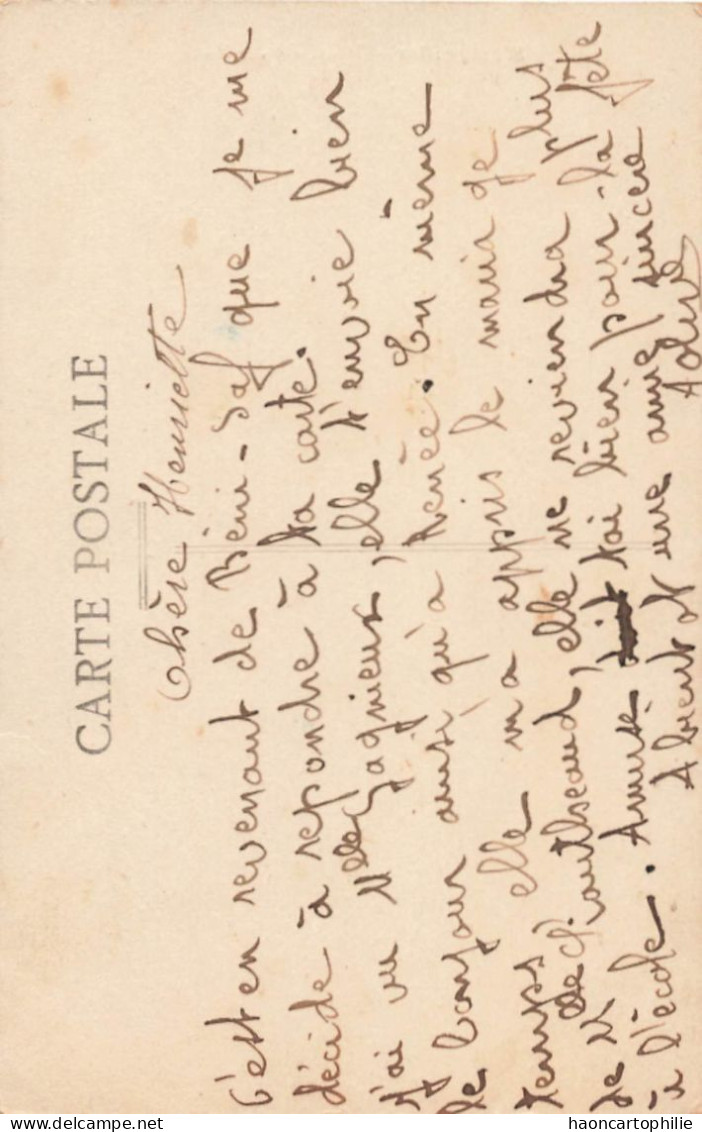 CARTE POSTALE
Chère Henriette
C'est en revenant de Béni-Saf que je me
décide à repondre à ta carte.
J'ai vu Melle Gagnieux, elle t'envoie bien
le bonjour ainsi qu'a Renée. En même
temps elle m'a appris le mariage
de Melle elle ne reviendra plus
à l'école. Amuse toi bien pour la fête
A bientot une amie sincere
haoncartophilie